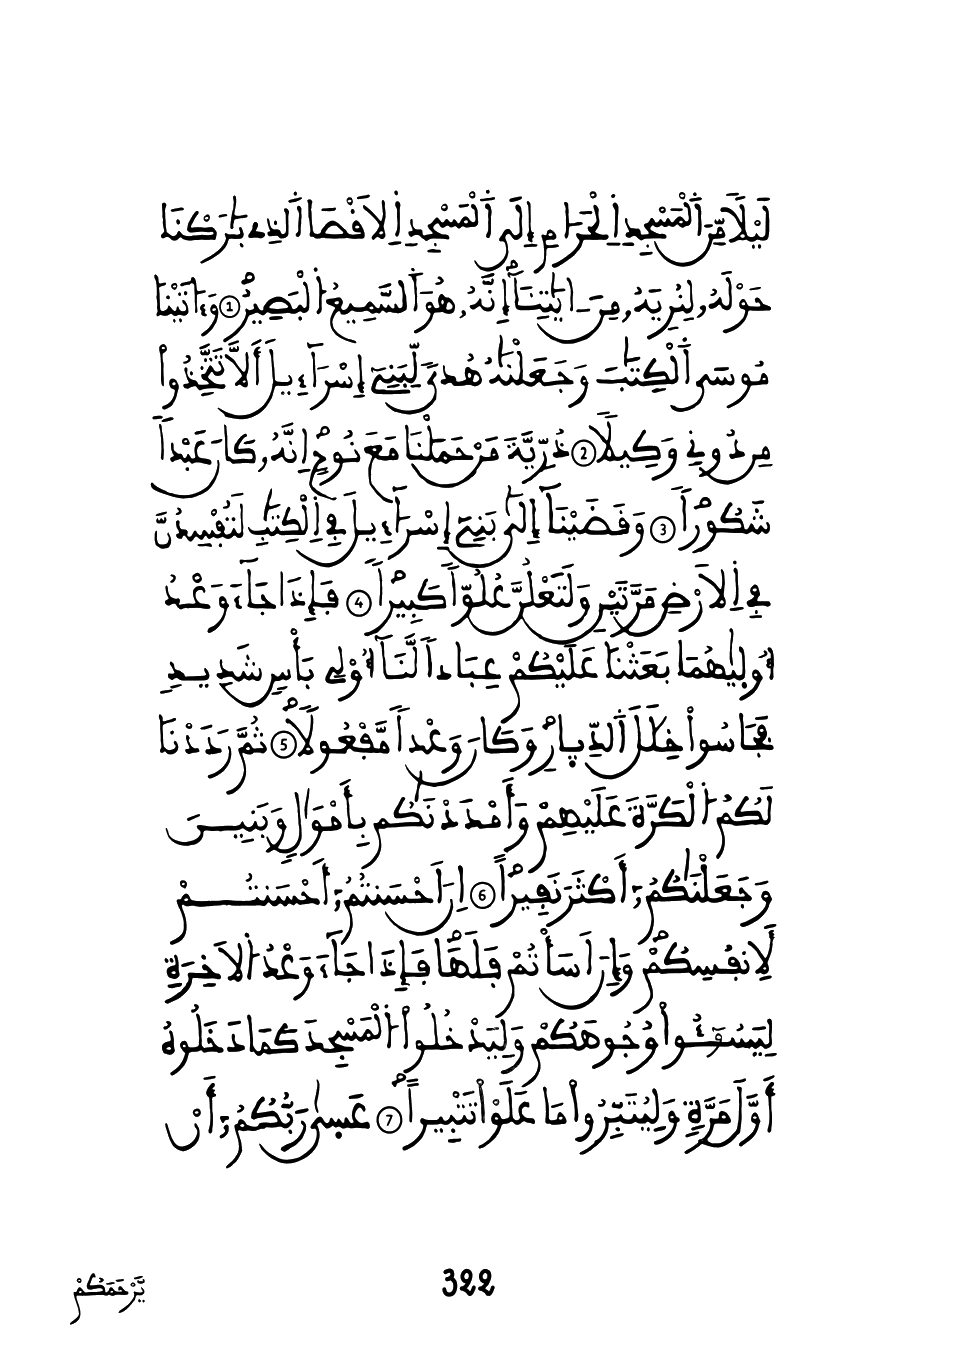 لَيْلاٗ مِّنَ اَ۬لْمَسْجِدِ اِ۬لْحَرَامِ إِلَي اَ۬لْمَسْجِدِ اِ۬لَاقْصَا اَ۬لذِے بَٰرَكْنَا
حَوْلَهُۥ لِنُرِيَهُۥ مِنَ اٰيَٰتِنَآ إِنَّهُۥ هُوَ اَ۬لسَّمِيعُ اُ۬لْبَصِيرُۖ 1 وَءَاتَيْنَا
مُوسَي اَ۬لْكِتَٰبَ وَجَعَلْنَٰهُ هُديٗ لِّبَنِےٓ إِسْرَآءِيلَ أَلَّا تَتَّخِذُواْ
مِن دُونِے وَكِيلاٗۖ 2 ذُرِّيَّةَ مَنْ حَمَلْنَا مَعَ نُوحٍۖ اِنَّهُۥ كَانَ عَبْداٗ
شَكُوراٗۖ 3 وَقَضَيْنَآ إِلَيٰ بَنِےٓ إِسْرَآءِيلَ فِے اِ۬لْكِتَٰبِ لَتُفْسِدُنَّ
فِے اِ۬لَارْضِ مَرَّتَيْنِ وَلَتَعْلُنَّ عُلُوّاٗ كَبِيراٗۖ 4 فَإِذَا جَآءَ وَعْدُ
أُولَيٰهُمَا بَعَثْنَا عَلَيْكُمْ عِبَاداٗ لَّنَآ أُوْلِے بَأْسٖ شَدِيدٖ
فَجَاسُواْ خِلَٰلَ اَ۬لدِّيارِۖ وَكَانَ وَعْداٗ مَّفْعُولاٗۖ 5 ثُمَّ رَدَدْنَا
لَكُمُ اُ۬لْكَرَّةَ عَلَيْهِمْ وَأَمْدَدْنَٰكُم بِأَمْوَٰلٖ وَبَنِينَ
وَجَعَلْنَٰكُمُۥٓ أَكْثَرَ نَفِيراًۖ 6 اِنَ اَحْسَنتُمُۥٓ أَحْسَنتُمْ
لِأَنفُسِكُمْۖ وَإِنَ اَسَأْتُمْ فَلَهَاۖ فَإِذَا جَآءَ وَعْدُ اُ۬لَاخِرَةِ
لِيَسُـُٔواْ وُجُوهَكُمْ وَلِيَدْخُلُواْ اُ۬لْمَسْجِدَ كَمَا دَخَلُوهُ
أَوَّلَ مَرَّةٖ وَلِيُتَبِّرُواْ مَا عَلَوْاْ تَتْبِيراًۖ 7 عَسيٰ رَبُّكُمُۥٓ أَنْ
يَّرْحَمَكُمْ
322